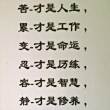 苦-才是人生，
累-才是工作，
变-才是命运，
忍-才是历练，
容-才是智慧，
静-才是修养，